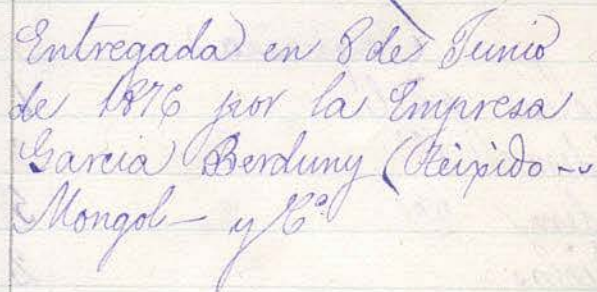 Entregada en 8 de Junio
de 1876 por la Empresa
Garcia Berduny (Reixido -
Mongol - y Cª